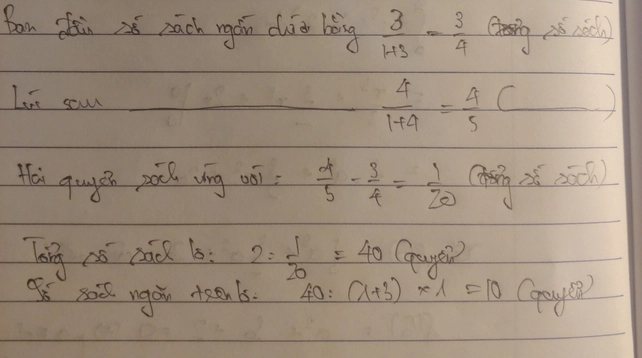 Ban đầu số sách ngăn dưới bằng 3/(1+3) = 3/4 (tổng số sách)
Lúc sau ———————— 4/(1+4) = 4/5 ( ———— )
Hai quyển sách ứng với: 4/5 - 3/4 = 1/20 (tổng số sách)
Tổng số sách là: 2 : 1/20 = 40 (quyển)
Số sách ngăn trên là: 40 : (1+3) × 1 = 10 (quyển)